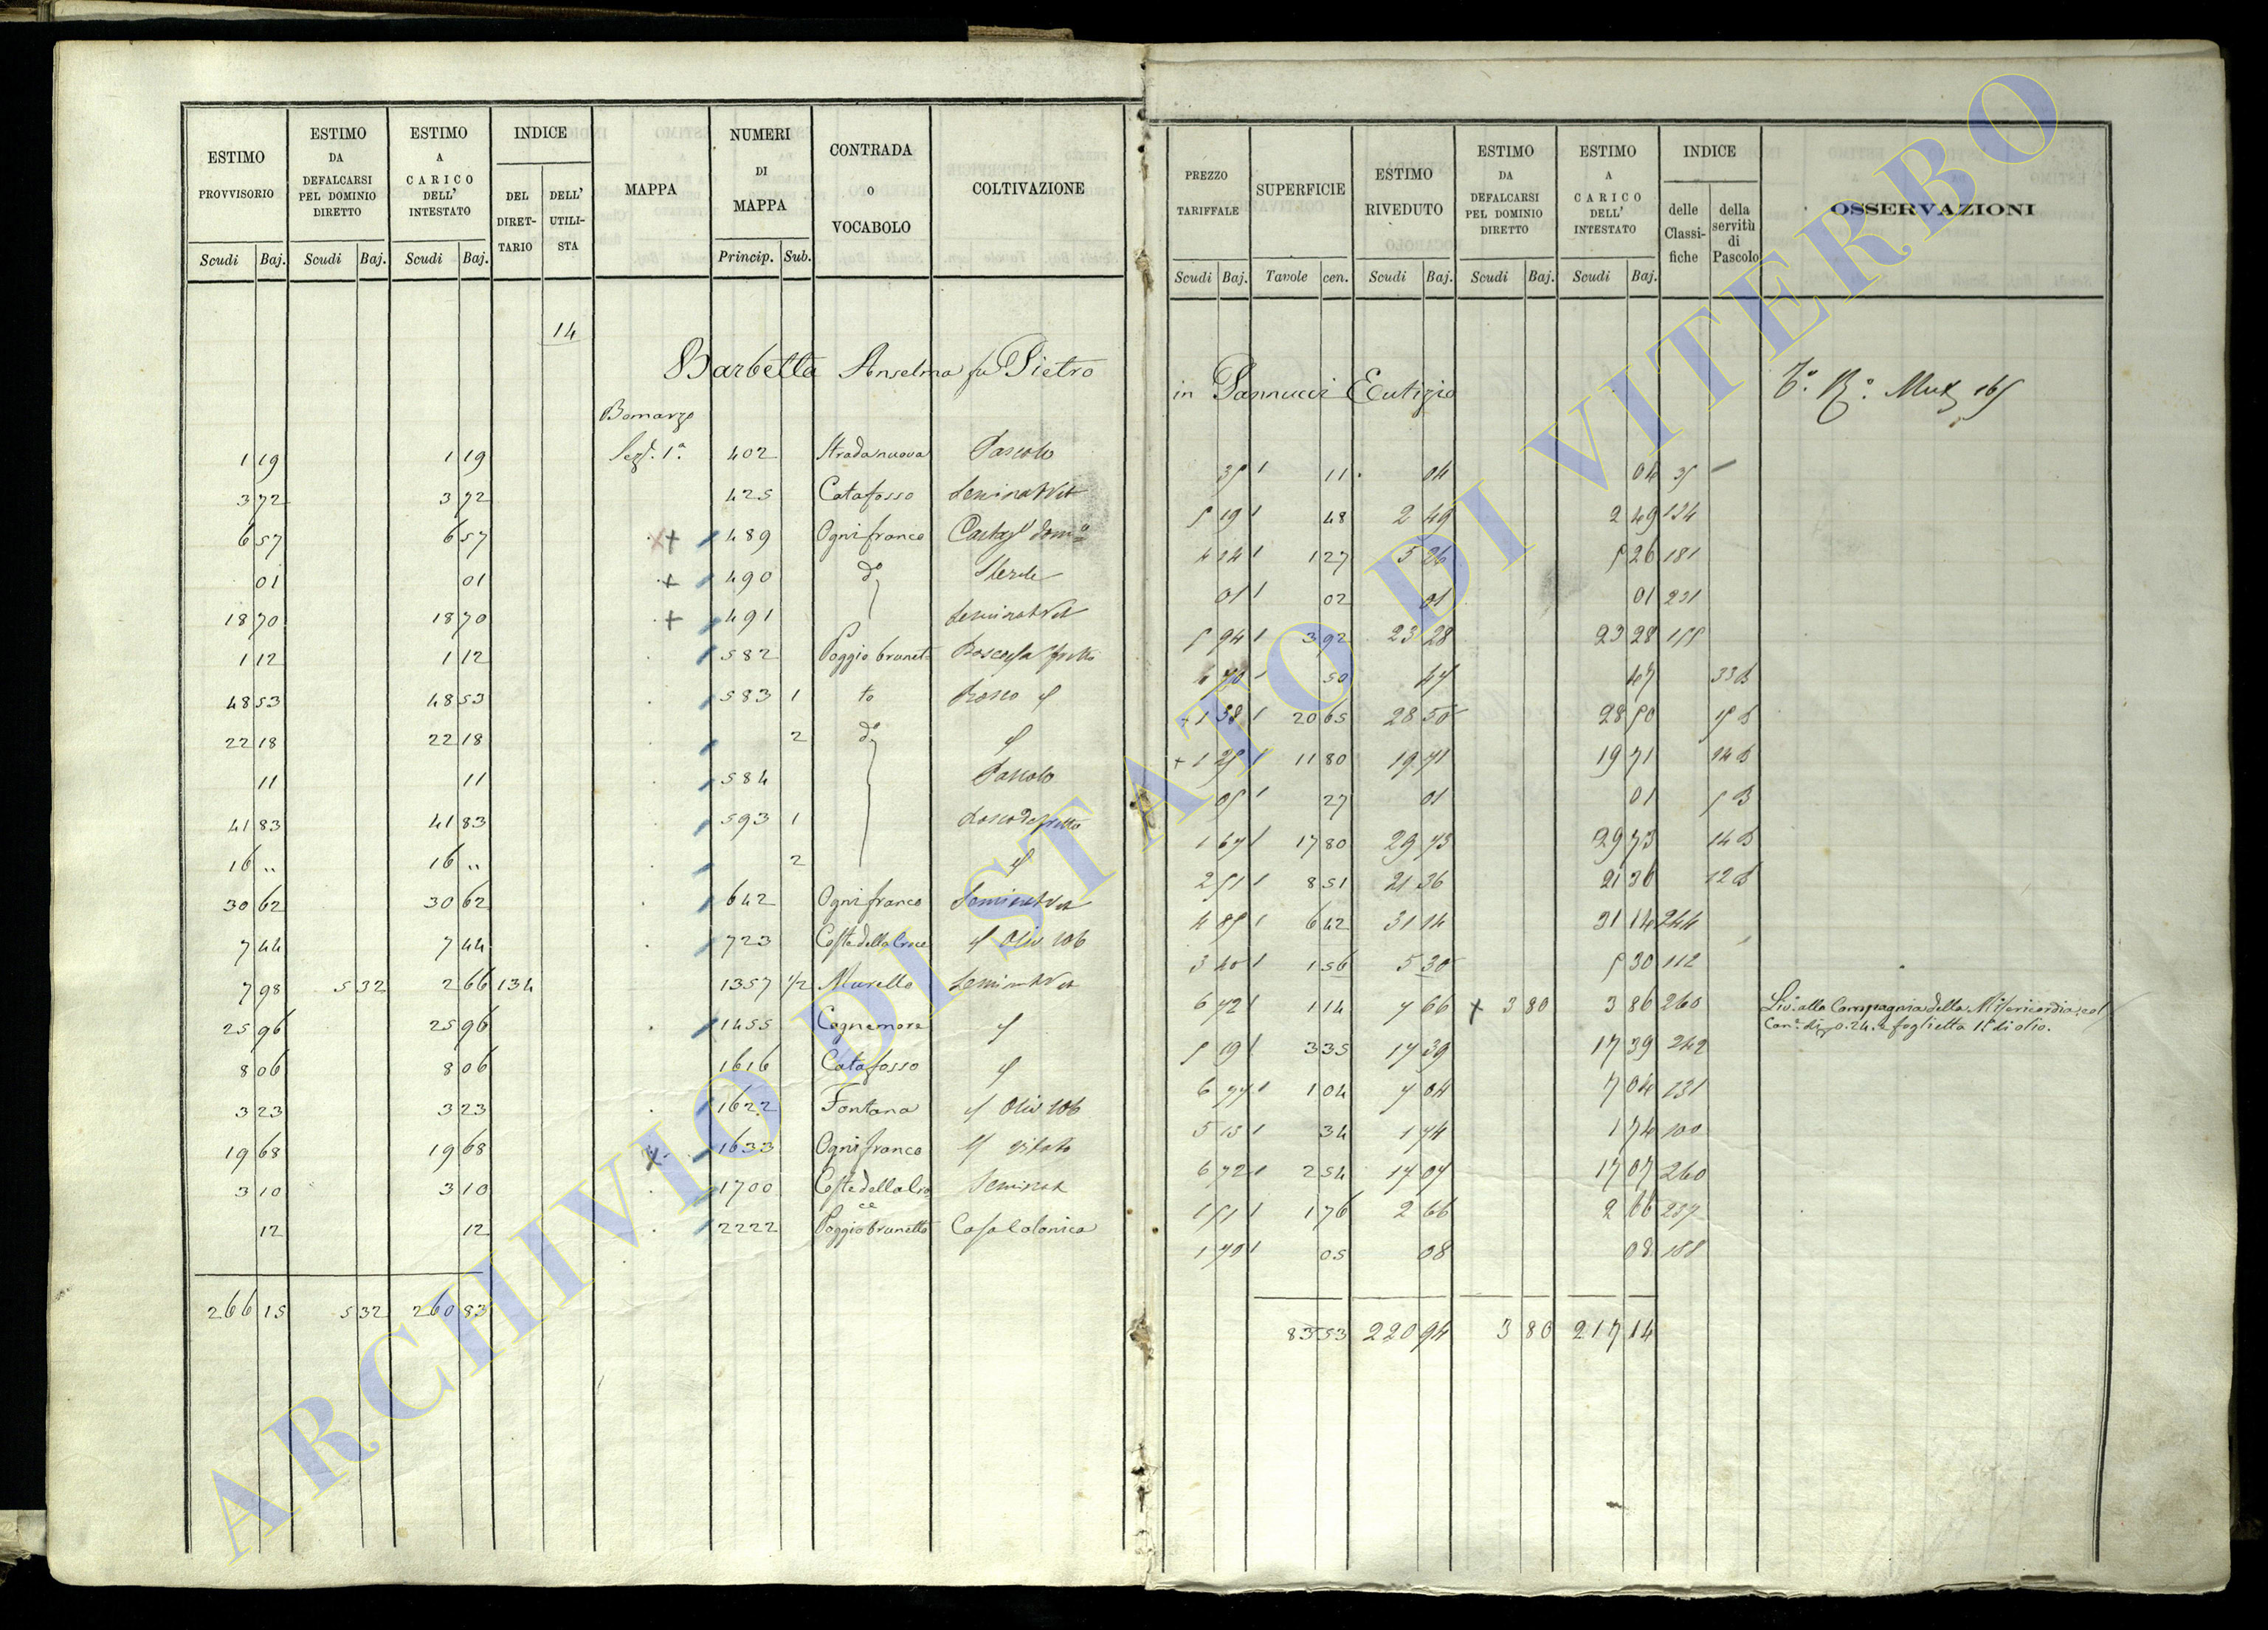 ESTIMO PROVVISORIO Scudi Baj. ESTIMO DA DEFALCARSI PEL DOMINIO DIRETTO Scudi Baj. ESTIMO A CARICO DELL' INTESTATO Scudi Baj. INDICE DEL DIRET-TARIO DELL' UTILI-STA MAPPA NUMERI DI MAPPA Princip. Sub. CONTRADA O VOCABOLO COLTIVAZIONE
14
Barbetta Anselma fu Pietro
Bomarzo
1 19 1 19 Sez. 1a 402 Strada nuova Pascolo
3 72 3 72 425 Catafosso Seminat Vit
6 57 6 57 + 489 Ognifranco
01 01 + 490 do Sterile
18 70 18 70 + 491 Seminat Vit
1 12 1 12 582 Poggio brunet-
48 53 48 53 583 1 to Bosco
22 18 22 18 2 do
11 11 584 Pascolo
41 83 41 83 593 1
16 .. 16 .. 2
30 62 30 62 642 Ognifranco Seminat Vit
7 44 7 44 723 Coste della Croce Oliv
7 98 5 32 2 66 134 1357 1/2 Murello Seminat Vit
25 96 25 96 1455 Cognemore
8 06 8 06 1616 Catafosso
3 23 3 23 1622 Fontana Oliv
19 68 19 68 1633 Ognifranco vitato
3 10 3 10 1700 Coste della Cro Seminat
ce
12 12 2222 Poggio brunetto Casa Colonica
266 15 5 32 260 83
PREZZO TARIFFALE Scudi Baj. SUPERFICIE Tavole cen. ESTIMO RIVEDUTO Scudi Baj. ESTIMO DA DEFALCARSI PEL DOMINIO DIRETTO Scudi Baj. ESTIMO A CARICO DELL' INTESTATO Scudi Baj. INDICE delle Classi-fiche della servitù di Pascolo OSSERVAZIONI
in Pannucci Eutizio
35 11 04 04 35
5 19 48 2 49 2 49 134
4 14 1 27 5 26 5 26 181
01 02 01 01 231
5 94 3 92 23 28 23 28 155
50 47 47
1 38 20 65 28 50 28 50
+ 1 67 11 80 19 71 19 71 14 B
05 27 01 01 5 B
1 67 17 80 29 73 29 73 14 B
2 51 8 51 21 36 21 36 12 B
4 85 6 42 31 14 31 14 244
3 40 1 56 5 30 5 30 112
6 72 1 14 7 66 + 3 80 3 86 260 Liv. alla Compagnia della Misericordia, col
Can. di 24. e foglietta 1. di olio.
5 19 3 35 17 39 17 39 242
6 77 1 04 7 04 7 04 131
5 13 34 1 74 1 74 100
6 72 2 54 17 07 17 07 260
1 51 1 76 2 66 2 66 237
05 08 08 188
83 53 220 94 3 80 217 14
ARCHIVIO DI STATO DI VITERBO